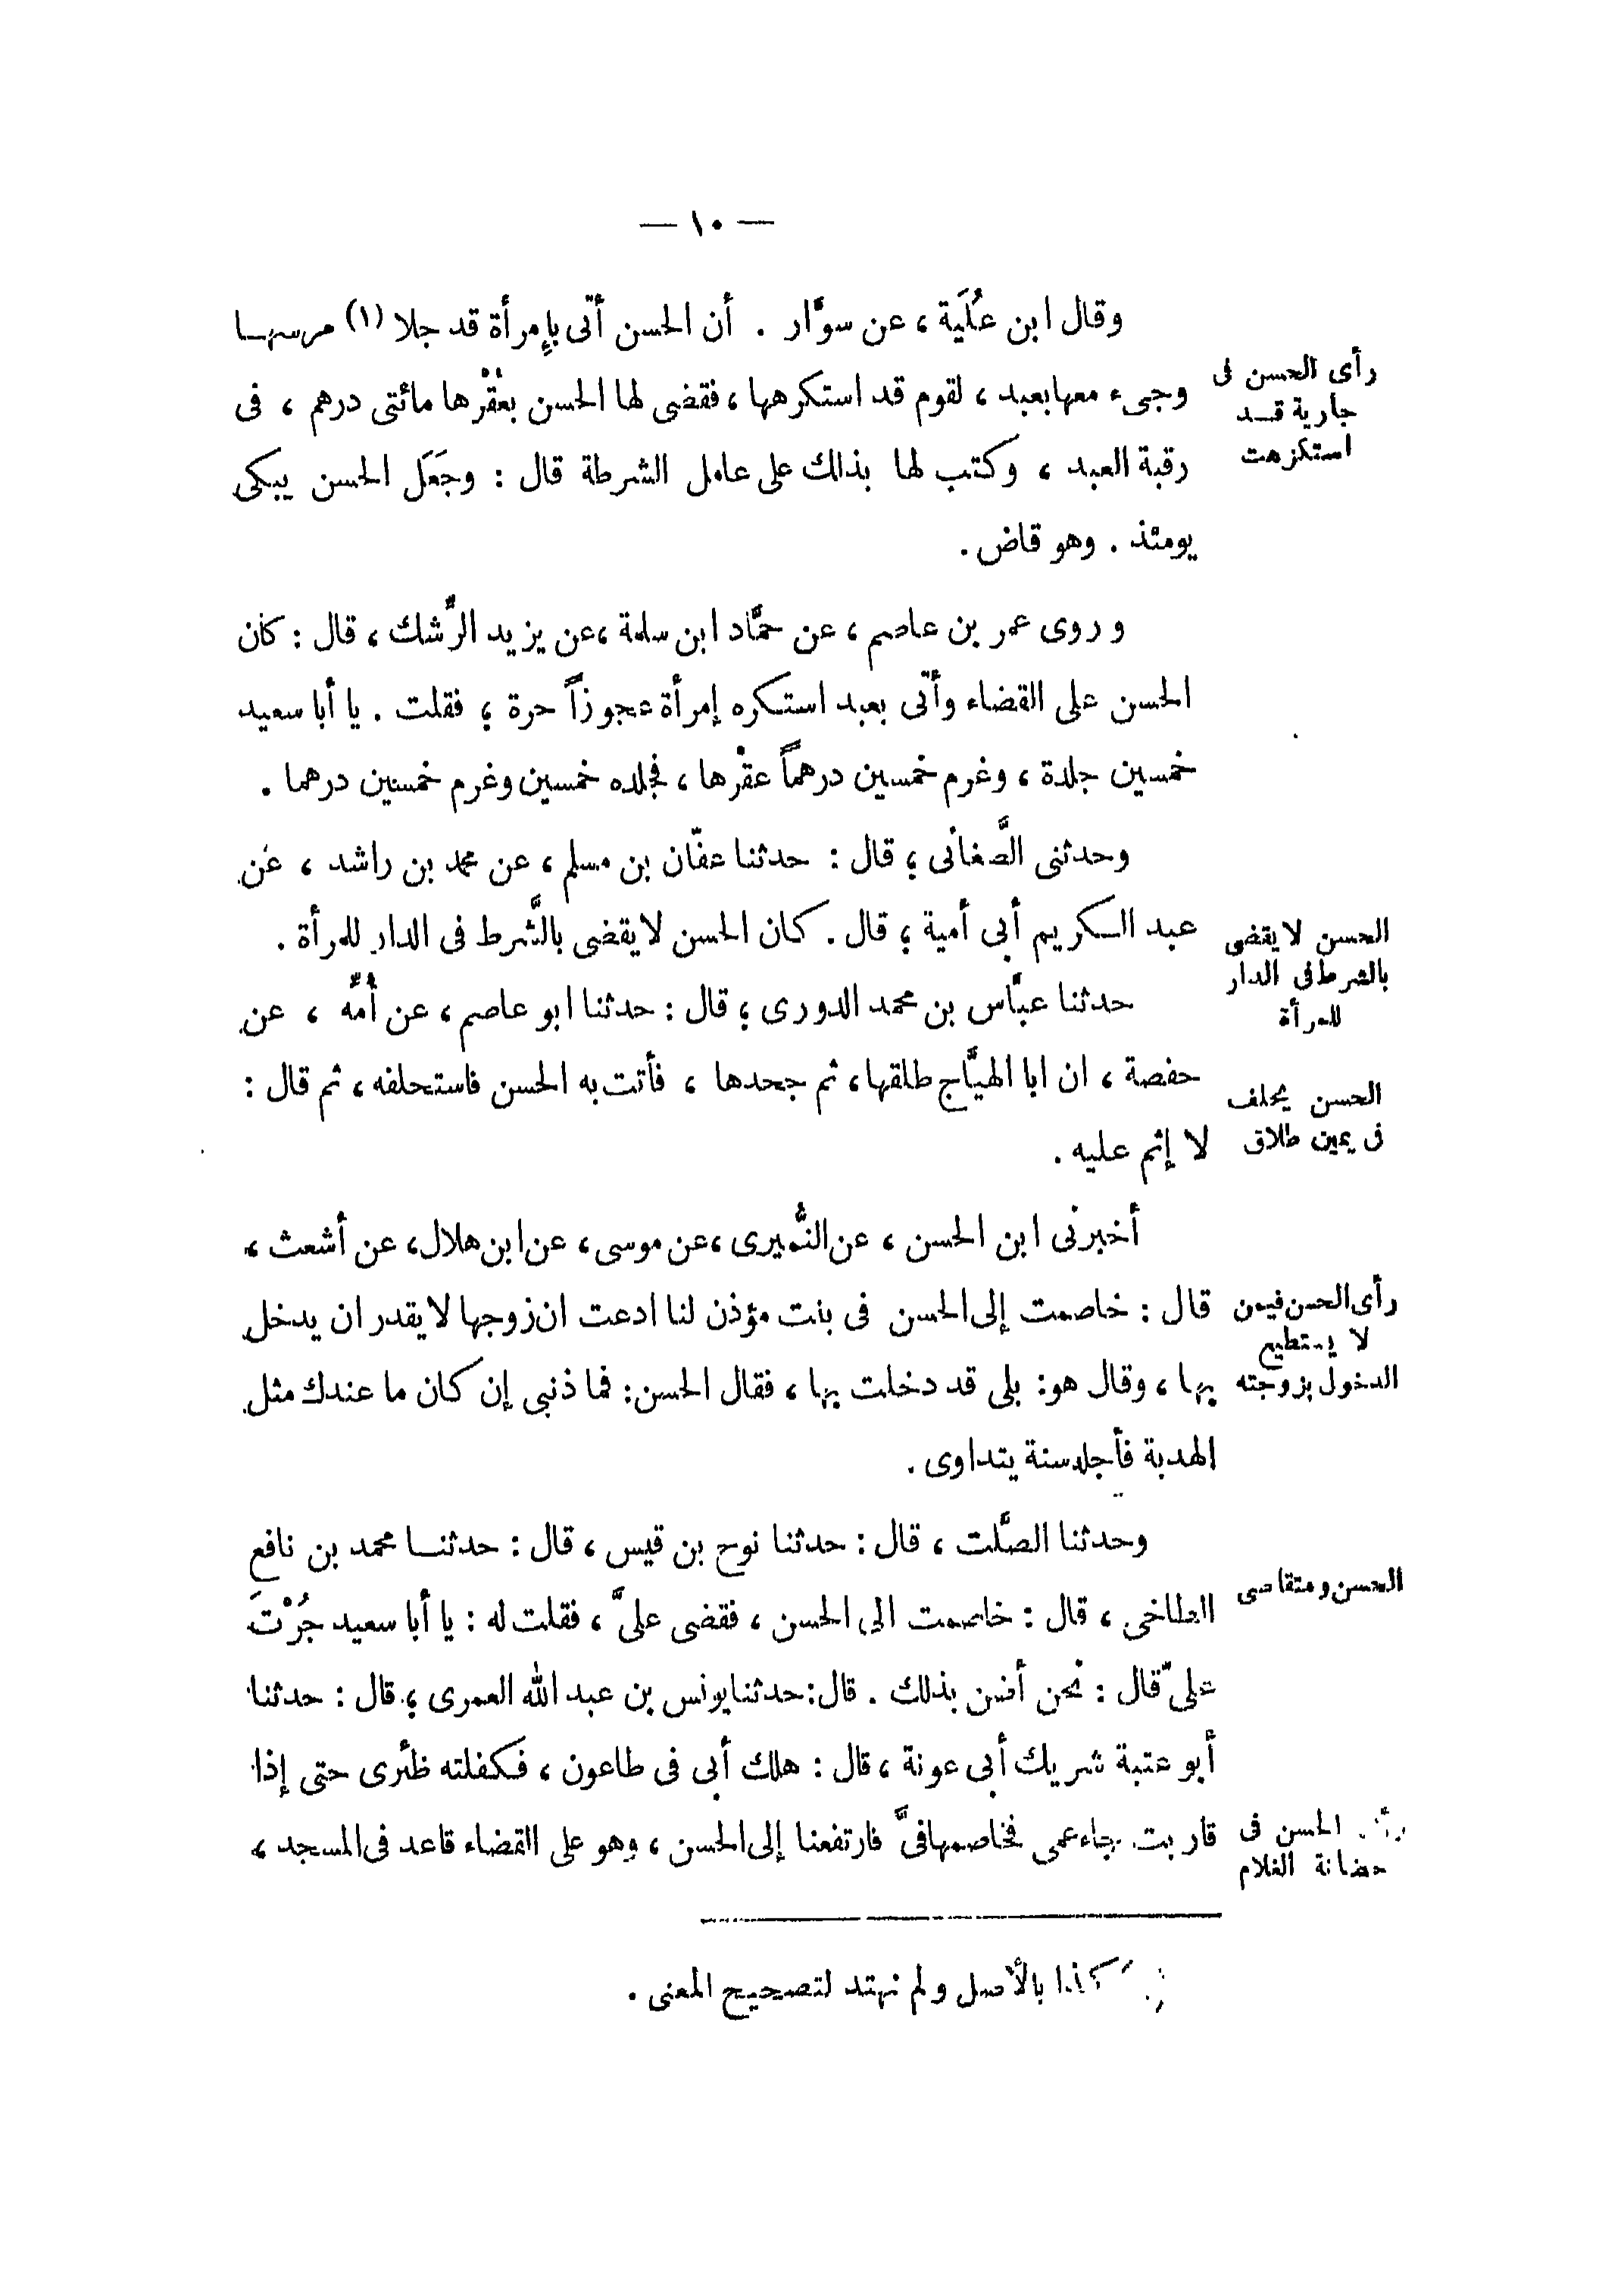 — ١٠ —
وقال ابن عُلَية ، عن سوَّار . أن الحسن أتى بإمرأة قد جلا (١) مرسهـا
رأى الحسن فى
جارية قـد
استكرهت
وجىء معها بعبد ، لقوم قد استكرهها ، فقضى لها الحسن بعُقْرها مائتى درهم ، فى
رقبة العبد ، وكتب لها بذلك على عامل الشرطة قال : وجَعَل الحسن يبكى
يومئذ . وهو قاض .
وروى عمر بن عاصم ، عن حمَّاد ابن سلمة ، عن يزيد الرَّشك ، قال : كان
الحسن على القضاء وأتى بعبد استكره إمرأة عجوزاً حرة ؛ فقلت . يا أبا سعيد
خمسين جلدة ، وغرم خمسين درهماً عقْرها ، فجلده خمسين وغرم خمسين درهما .
وحدثنى الصَّغانى ؛ قال : حدثنا عفّان بن مسلم ، عن محمد بن راشد ، عن
عبد الكريم أبى أمية ؛ قال . كان الحسن لا يقضى بالشَّرط فى الدار للمرأة .
الحسن لا يقضى
بالشرط فى الدار
للمرأة
حدثنا عبَّاس بن محمد الدورى ؛ قال : حدثنا ابو عاصم ، عن أُمّه ، عن
حفصة ، ان ابا الهيَّاج طلقها ، ثم جحدها ، فأتت به الحسن فاستحلفه ، ثم قال :
الحسن يحلف
فى يمين طلاق
لا إثم عليه .
أخبرنى ابن الحسن ، عن النُّميرى ، عن موسى ، عن ابن هلال ، عن أشعث ،
قال : خاصمت إلى الحسن فى بنت مؤذن لنا ادعت ان زوجها لا يقدر ان يدخل
رأى الحسن فيمن
لا يستطيع
الدخول بزوجته
بها ، وقال هو : بلى قد دخلت بها ، فقال الحسن : فما ذنبى إن كان ما عندك مثل
الهدبة فأجله سنة يتداوى .
وحدثنا الصَّلت ، قال : حدثنا نوح بن قيس ، قال : حدثنـا محمد بن نافع
الحسن ومتقاضى
الطاخى ، قال : خاصمت الى الحسن ، فقضى علىَّ ، فقلت له : يا أبا سعيد جُرْتَ
علىّ قال : نحن أضن بذلك . قال : حدثنا يونس بن عبد الله العمرى ؛ قال : حدثنا
أبو عتبة شريك أبى عونة ، قال : هلك أبى فى طاعون ، فكفلته ظئرى حتى إذا
قاربت جاء عمى فخاصمها فىَّ فارتفعنا إلى الحسن ، وهو على القضاء قاعد فى المسجد ،
الحسن فى
حضانة الغلام
كذا بالأصل ولم نهتد لتصحيح المعنى .